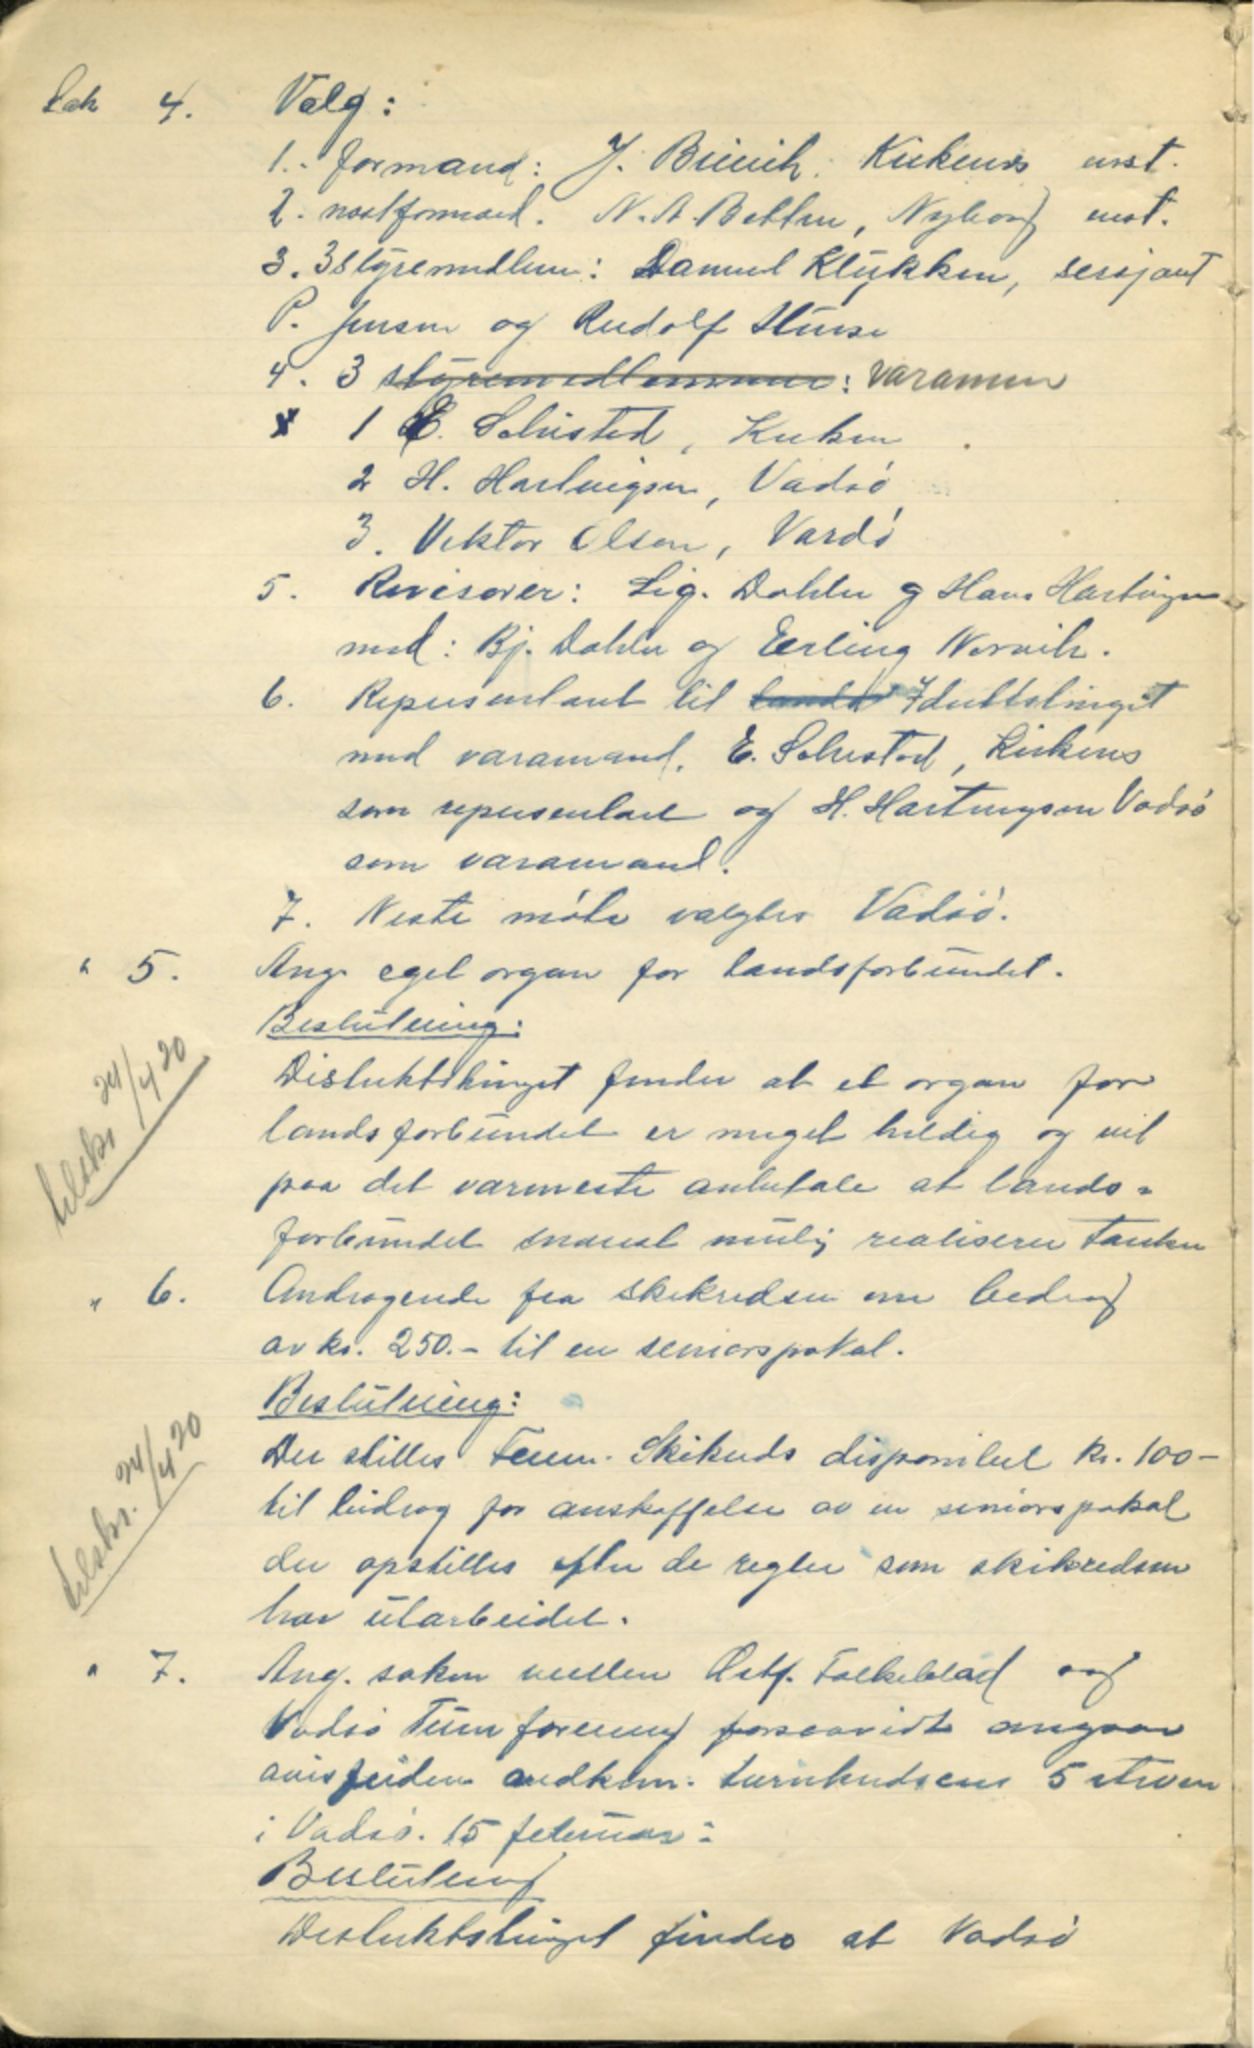 Sak 4. Valg:
1. formand: J. Kirkenes enst.
2. næstformand. N. A. Nyborg enst.
3. 3 styremedlem: Daniel Klykken, sersjant
P. Jensen og Rudolf
4. 3 styremedlemmer: varamen
1 E. Solvistad, Kirken
2 H. Hartvigsen, Vadsö
3. Viktor Olsen, Vardö
5. Revisorer: Sig. Dahler og Hans Hartvigsen
med: Bj. Dahler og Erling Norvik.
6. Representant til lands idrettstinget
med varamand. E. Solvistad, Kirkenes
som representant og H. Hartvigsen Vadsö
som varamand.
7. Neste möte valgtes Vadsö.
" 5. Ang. eget organ for landsforbundet.
Beslutning:
Distriktstinget finder at et organ for
landsforbundet er meget heldig og vil
paa det varmeste anbefale at lands-
forbundet snarest mulig realiserer tanken
tilskr. 24/4 20
" 6. Andragende fra skikredsen om bedrag
av kr. 250.- til en seniorspokal.
Beslutning:
Der stilles Finm. Skikreds disponibel kr. 100-
til bidrag for anskaffelse av en seniorspokal
der opstilles efter de regler som skikredsen
har utarbeidet.
tilskr. 24/4 20
" 7. Ang. saken mellem Østf. Folkeblad og
Vadsö Turnforening forsaavidt angaar
avisfeiden vedkom. turnkredsens 5 stevne
i Vadsö. 15 februar:
Beslutning
Distriktstinget finder at Vadsö